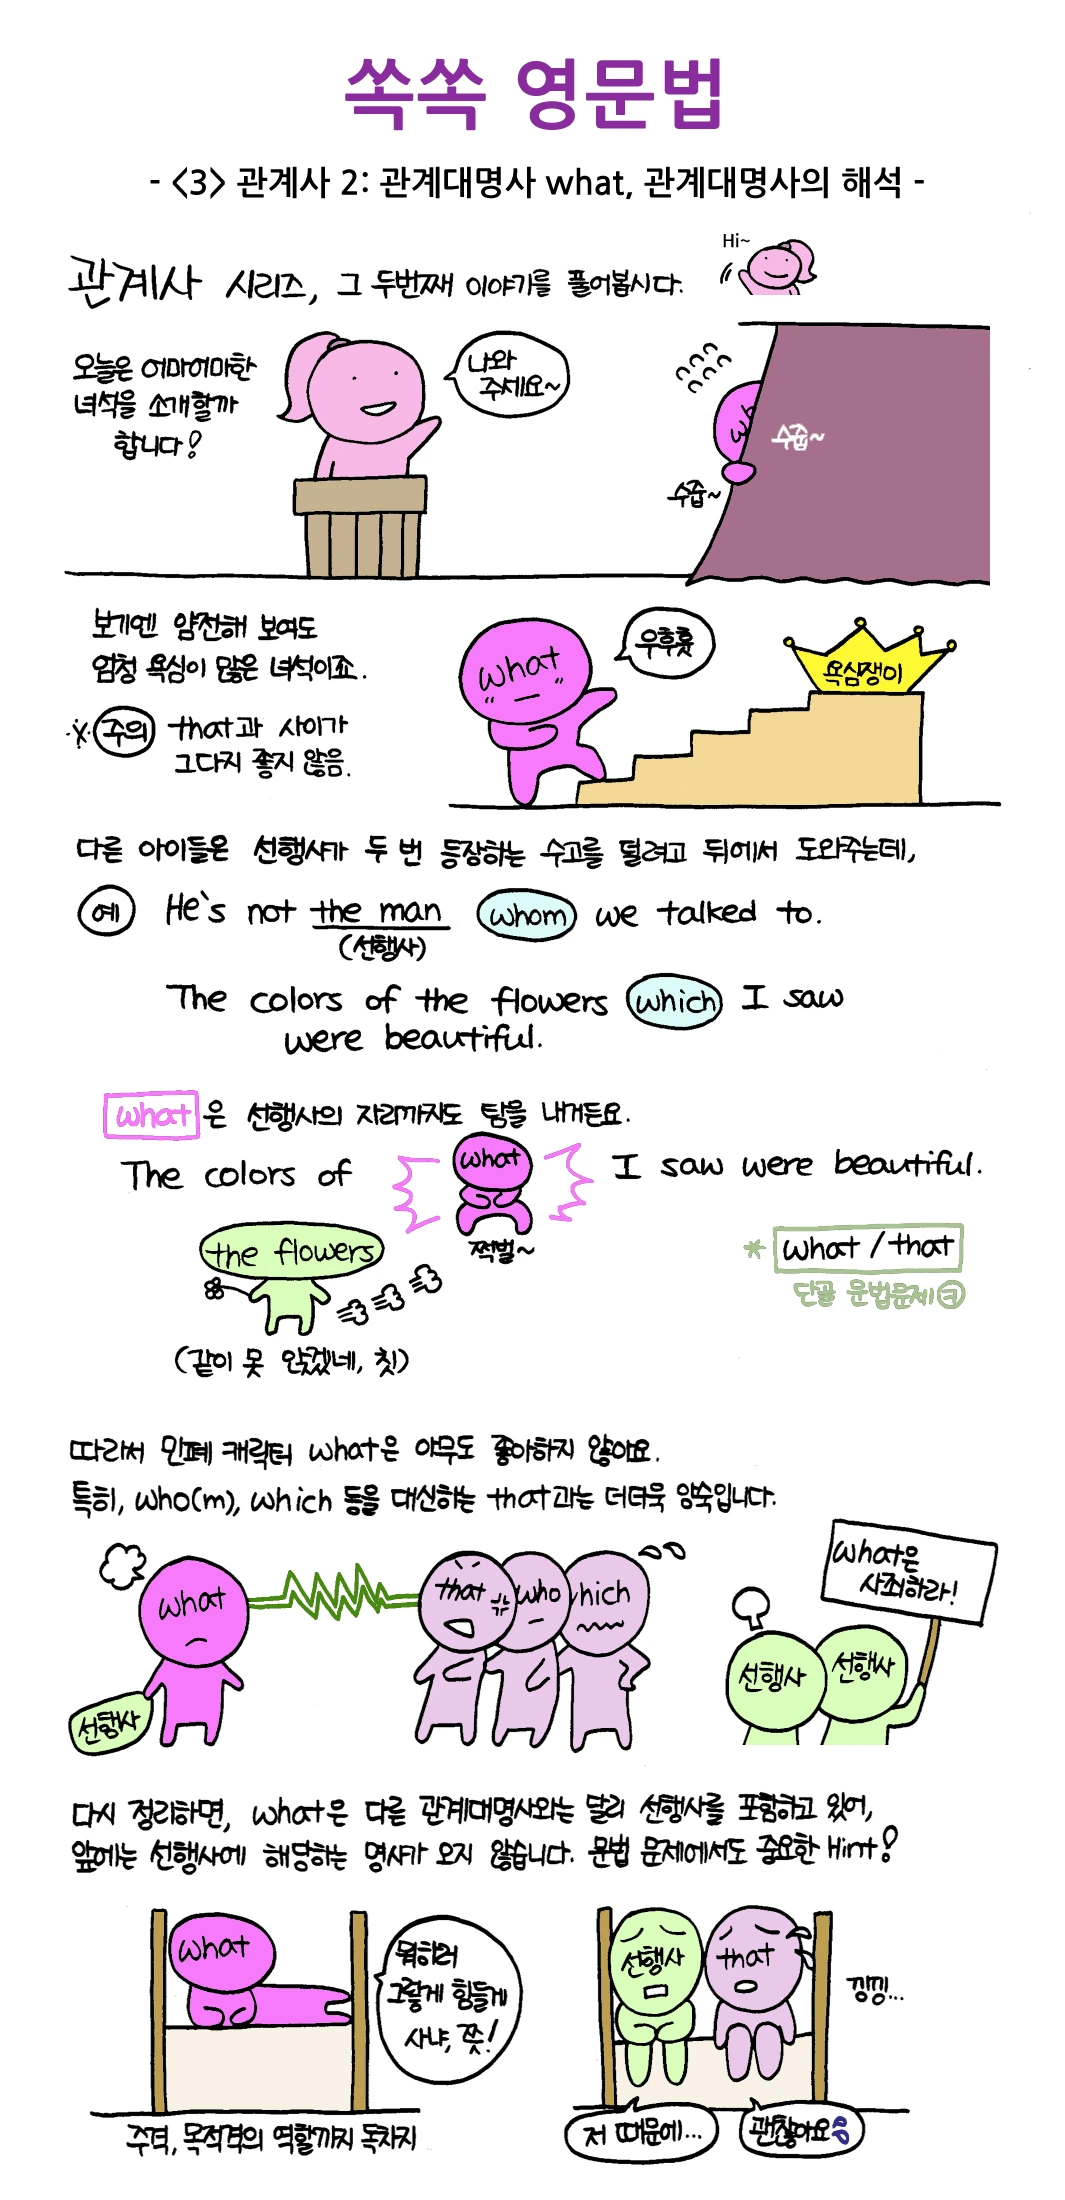 쏙쏙 영문법
- <3> 관계사 2: 관계대명사 what, 관계대명사의 해석 -
Hi~
관계사 시리즈, 그 두번째 이야기를 풀어봅시다.
오늘은 어마어마한
녀석을 소개할까
합니다!
나와
주세요~
wh
수줍~
수줍~
보기엔 얌전해 보여도
엄청 욕심이 많은 녀석이죠.
※ 주의 that과 사이가
그다지 좋지 않음.
what
우후훗
욕심쟁이
다른 아이들은 선행사가 두 번 등장하는 수고를 덜려고 뒤에서 도와주는데,
예 He's not the man whom we talked to.
(선행사)
The colors of the flowers which I saw
were beautiful.
what은 선행사의 자리까지도 탐을 내거든요.
The colors of what I saw were beautiful.
쩍벌~
the flowers
* what / that
단골 문법문제 ㅋ
(같이 못 앉겠네, 칫)
따라서 민폐 캐릭터 what은 아무도 좋아하지 않아요.
특히, who(m), which 등을 대신하는 that과는 더더욱 앙숙입니다.
what
선행사
that who hich
what은
사죄하라!
선행사 선행사
다시 정리하면, what은 다른 관계대명사와는 달리 선행사를 포함하고 있어,
앞에는 선행사에 해당하는 명사가 오지 않습니다. 문법 문제에서도 중요한 Hint!
what
뭐하러
그렇게 힘들게
사냐, 쯧!
주격, 목적격의 역할까지 독차지
선행사 that
낑낑...
저 때문에...
괜찮아요